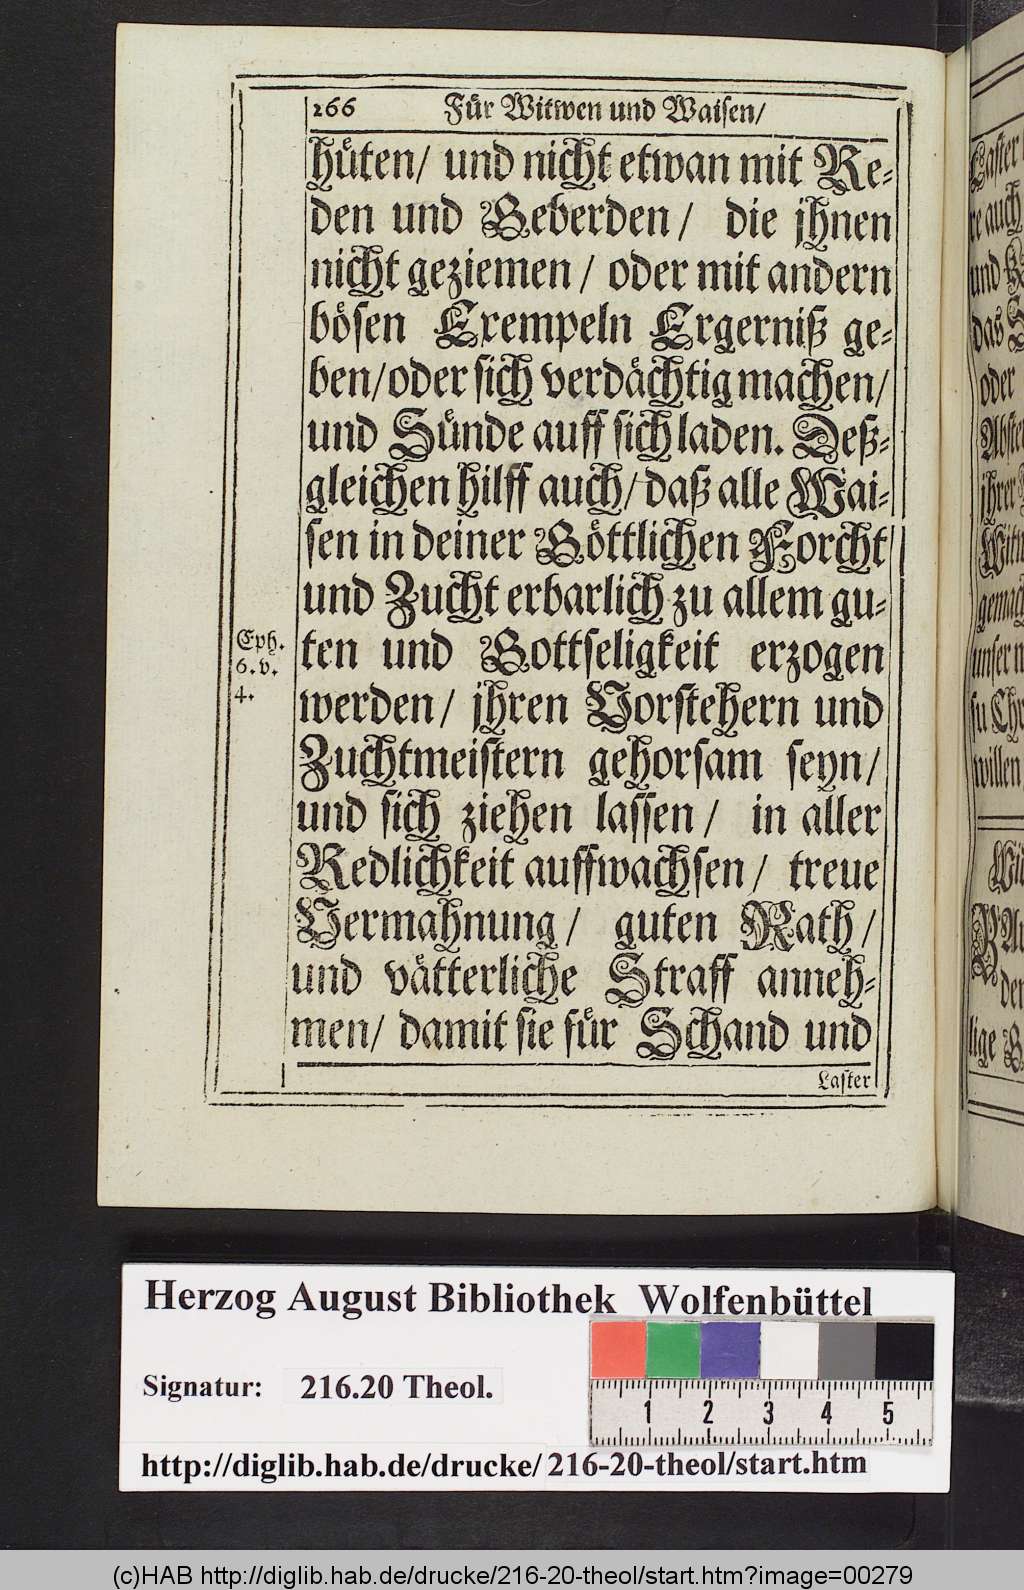 266 Fůr Witwen und Waiſen/
hůten/ und nicht etwan mit Re⸗
den und Geberden/ die jhnen
nicht geziemen/ oder mit andern
bőſen Exempeln Ergerniß ge⸗
ben/oder ſich verdächtig machen/
und Sůnde auff ſich laden. Deß⸗
gleichen hilff auch/ daß alle Wai⸗
ſen in deiner Göttlichen Forcht
und Zucht erbarlich zu allem gu⸗
ten und Gottſeligkeit erzogen
Eph.
6. v.
4.
werden/ jhren Vorſtehern und
Zuchtmeiſtern gehorſam ſeyn/
und ſich ziehen laſſen/ in aller
Redlichkeit auffwachſen/ treue
Vermahnung/ guten Rath/
und vätterliche Straff anneh⸗
men/ damit ſie fůr Schand und
Laſter
Laſter
re auch
und
das
oder
jhrer
unſer
willen
lige
Herzog August Bibliothek Wolfenbüttel
Signatur: 216.20 Theol.
1 2 3 4 5
http://diglib.hab.de/drucke/216-20-theol/start.htm
(c)HAB http://diglib.hab.de/drucke/216-20-theol/start.htm?image=00279